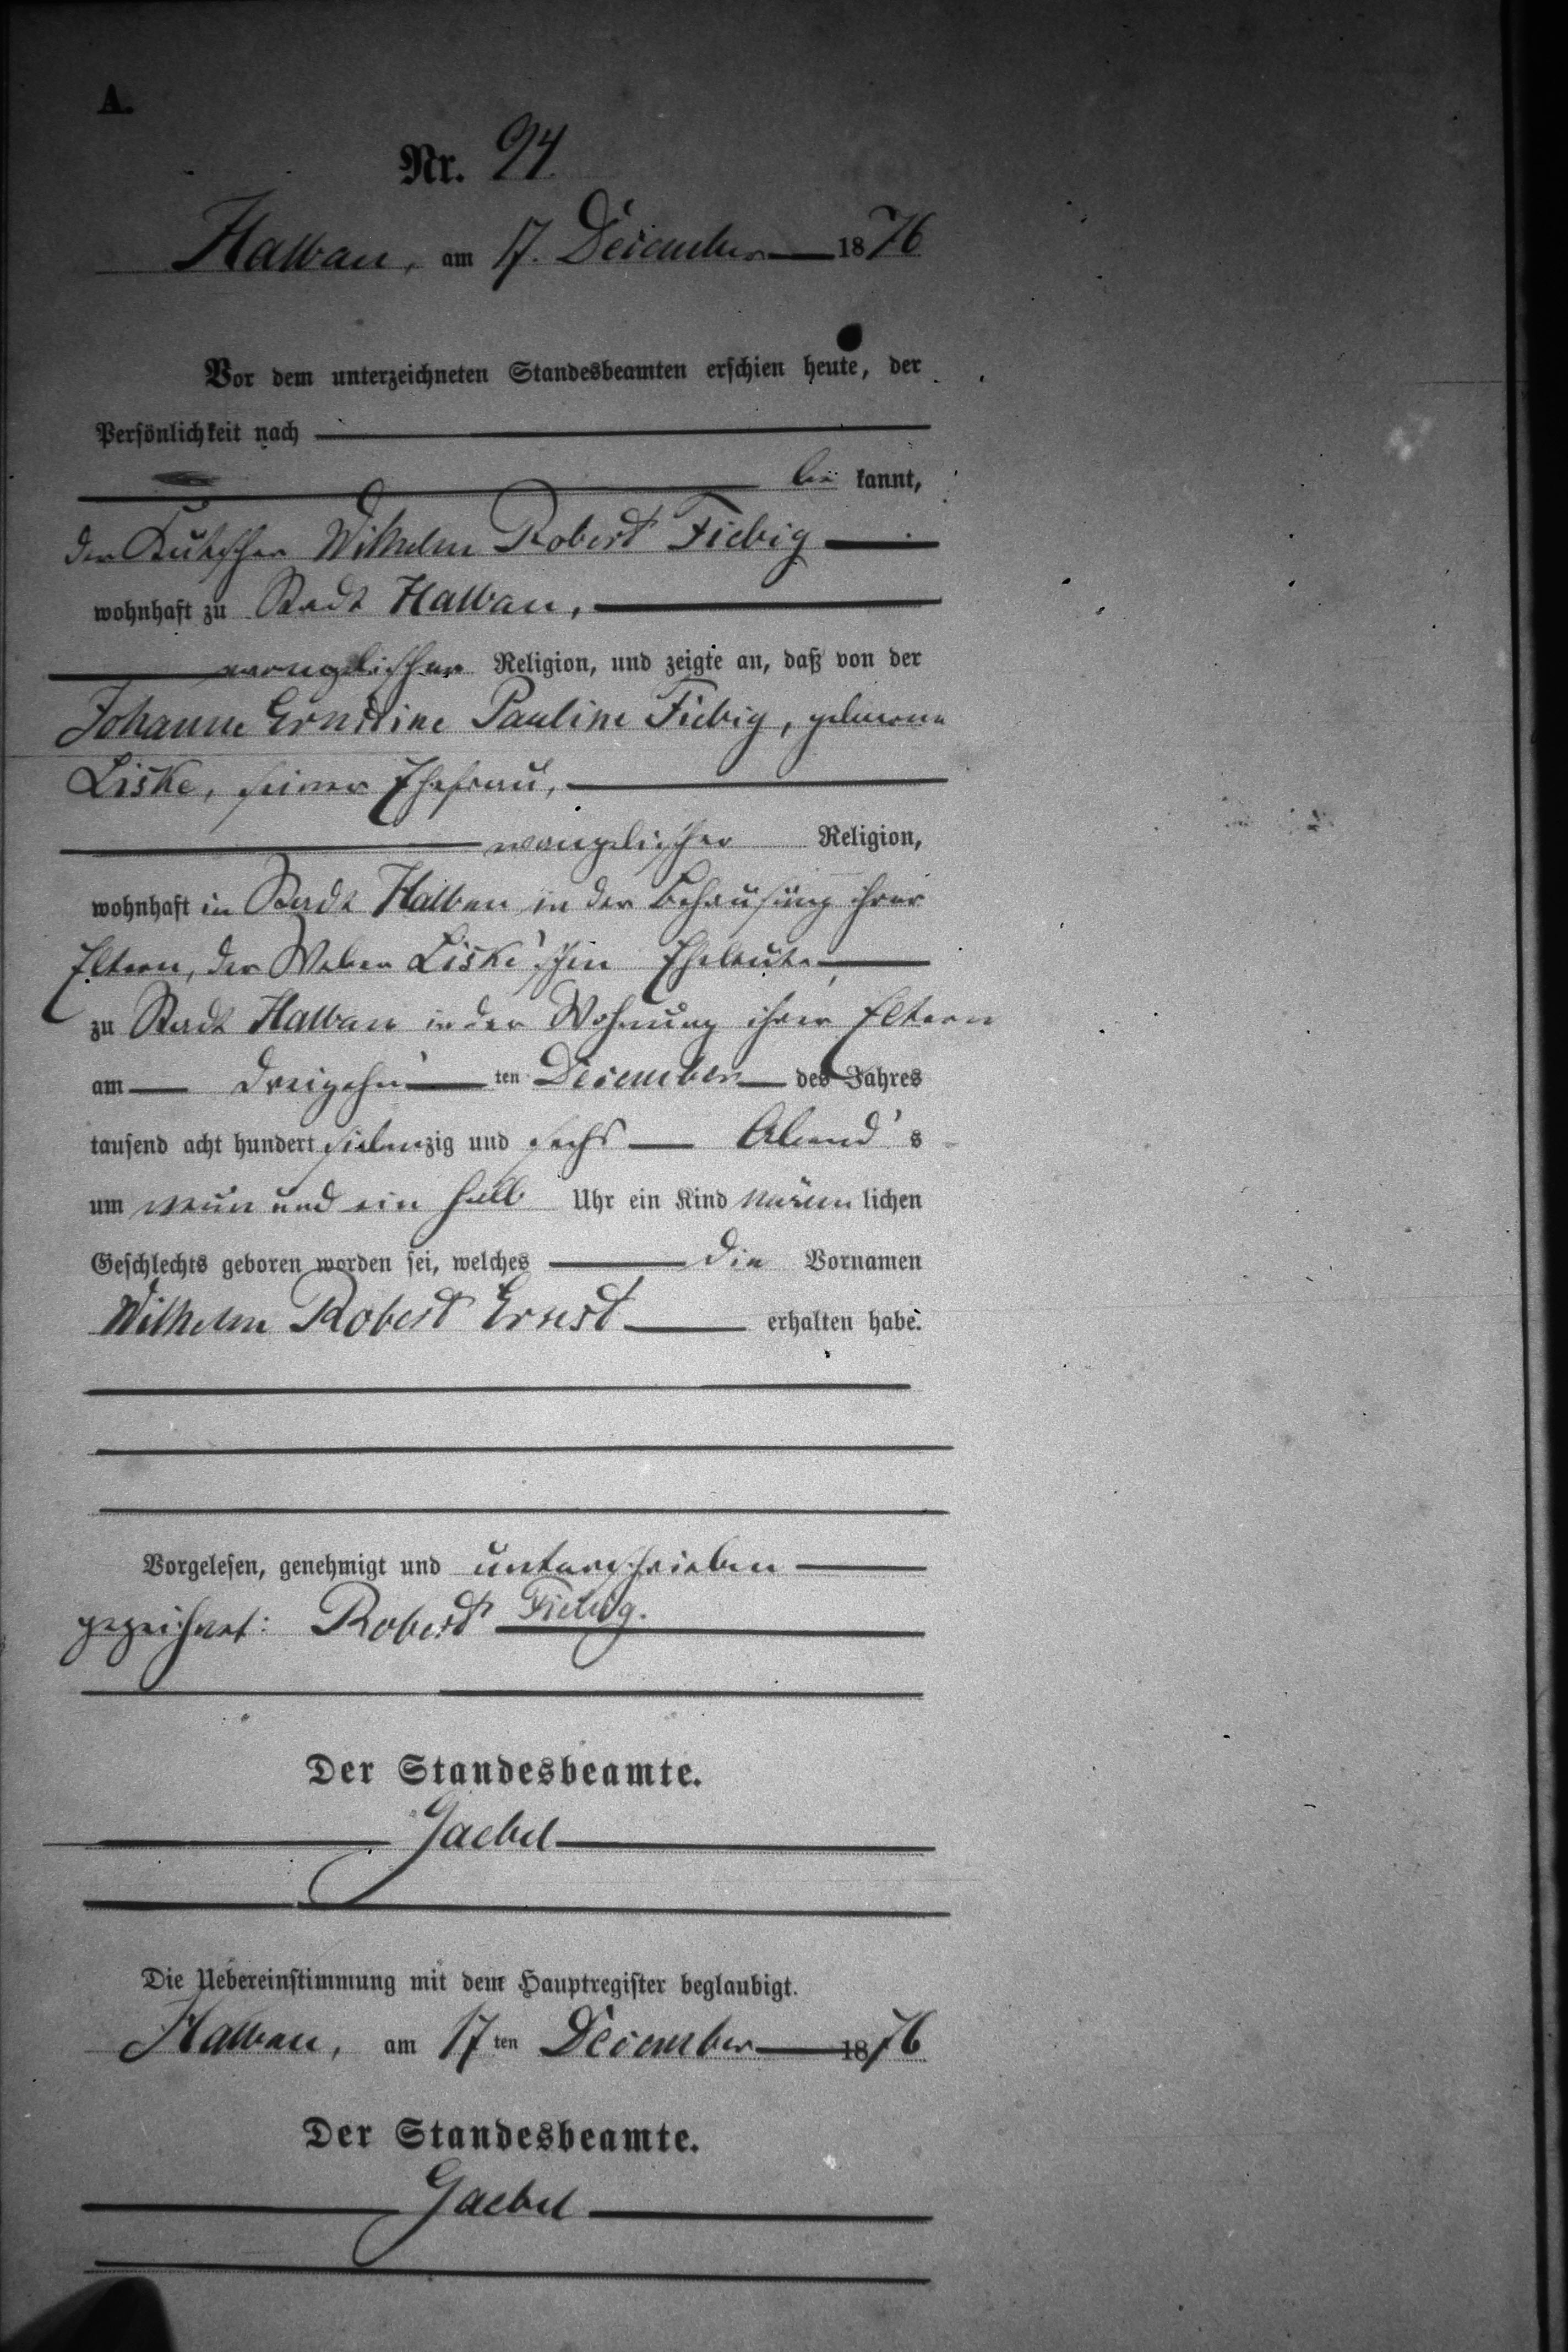 A.
Nr. 94.
Halbau, am 17. December 1876
Vor dem unterzeichneten Standesbeamten erschien heute, der
Persönlichkeit nach
be kannt,
der Kutscher Wilhelm Robert Fiebig
wohnhaft zu Stadt Halbau,
evangelischer Religion, und zeigte an, daß von der
Johanne Ernstine Pauline Fiebig, geborene
Liske, seiner Ehefrau,
evangelischer Religion,
wohnhaft in Stadt Halbau in der Behausung ihrer
Eltern, der Weber Liske'schen Eheleute,
zu Stadt Halbau in der Wohnung ihrer Eltern
am dreizehn ten December des Jahres
tausend acht hundert siebenzig und sechs Abend's
um neun und ein halb Uhr ein Kind männlichen
Geschlechts geboren worden sei, welches die Vornamen
Wilhelm Robert Ernst erhalten habe.
Vorgelesen, genehmigt und unterschrieben
gezeichnet: Robert Fiebig.
Der Standesbeamte.
Gaebel
Die Uebereinstimmung mit dem Hauptregister beglaubigt.
Halbau, am 17ten December 1876
Der Standesbeamte.
Gaebel